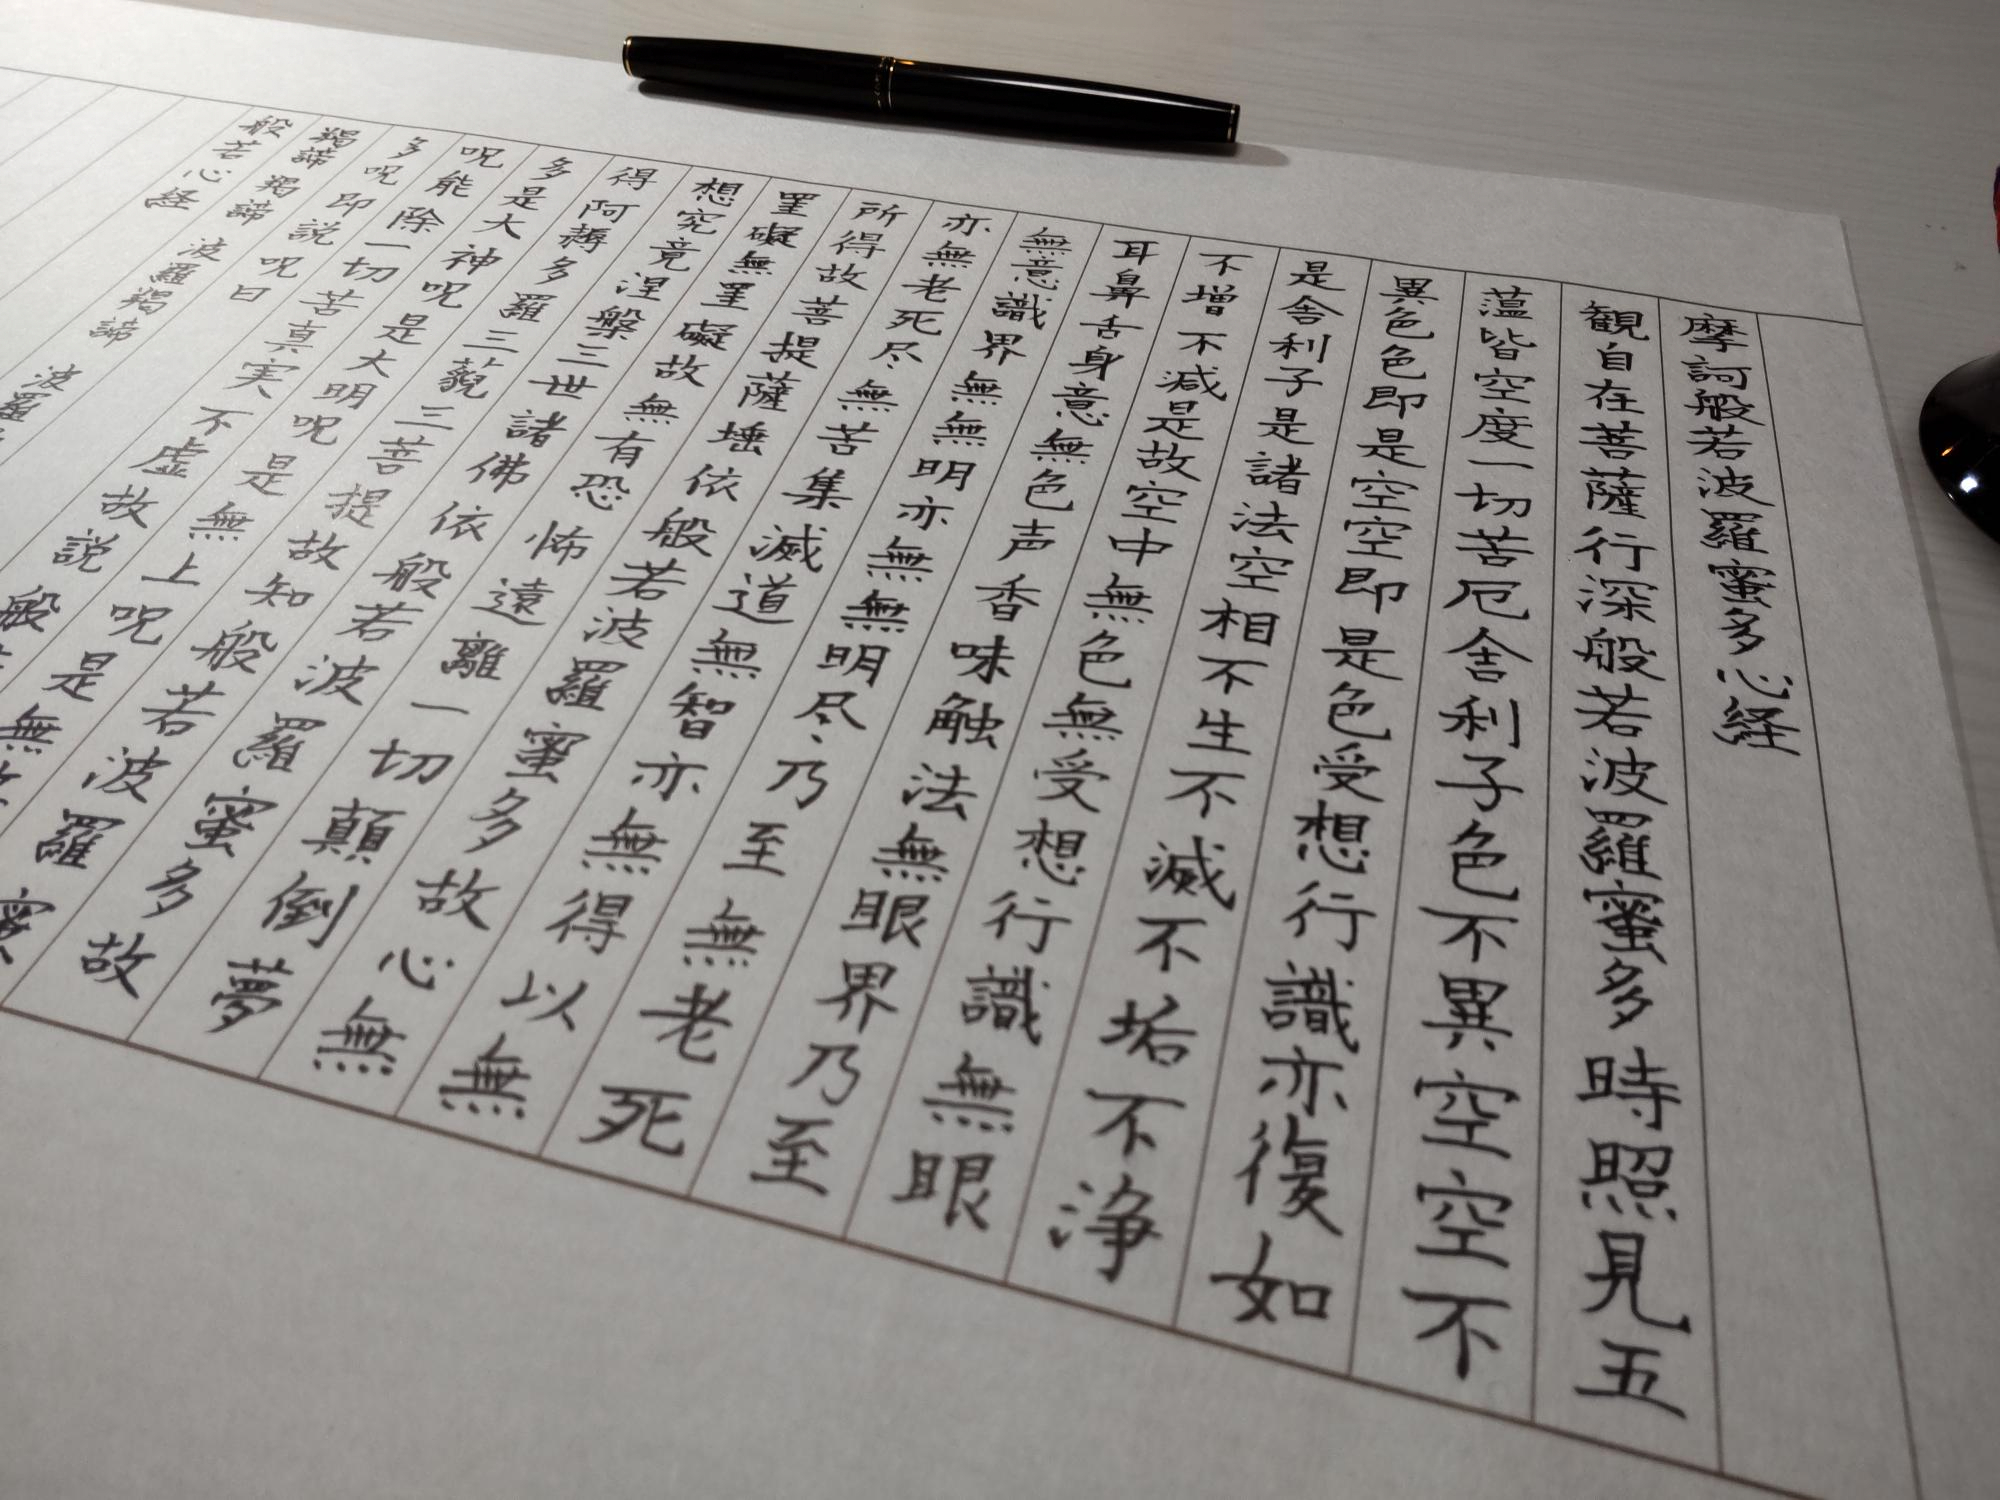 摩訶般若波羅蜜多心経
観自在菩薩行深般若波羅蜜多時照見五
薀皆空度一切苦厄舎利子色不異空空不
異色色即是空空即是色受想行識亦復如
是舎利子是諸法空相不生不滅不垢不浄
不増不減是故空中無色無受想行識無眼
耳鼻舌身意無色声香味触法無眼界乃至
無意識界無無明亦無無明尽乃至無老死
亦無老死尽無苦集滅道無智亦無得以無
所得故菩提薩埵依般若波羅蜜多故心無
罣礙無罣礙故無有恐怖遠離一切顛倒夢
想究竟涅槃三世諸佛依般若波羅蜜多故
得阿耨多羅三藐三菩提故知般若波羅蜜
多是大神呪是大明呪是無上呪是無
呪能除一切苦真実不虚故説般
多呪即説呪曰
羯諦 羯諦 波羅羯諦 波羅
般若心経